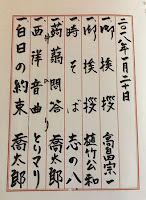 二〇一八年一月二十日
一、御挨拶 高畠宗一
一、御挨拶 植竹公和
一、時そば 志の八
一、蒟蒻問答 喬太郎
仲入り
一、西洋音曲 とりマリ
一、百日の約束 喬太郎